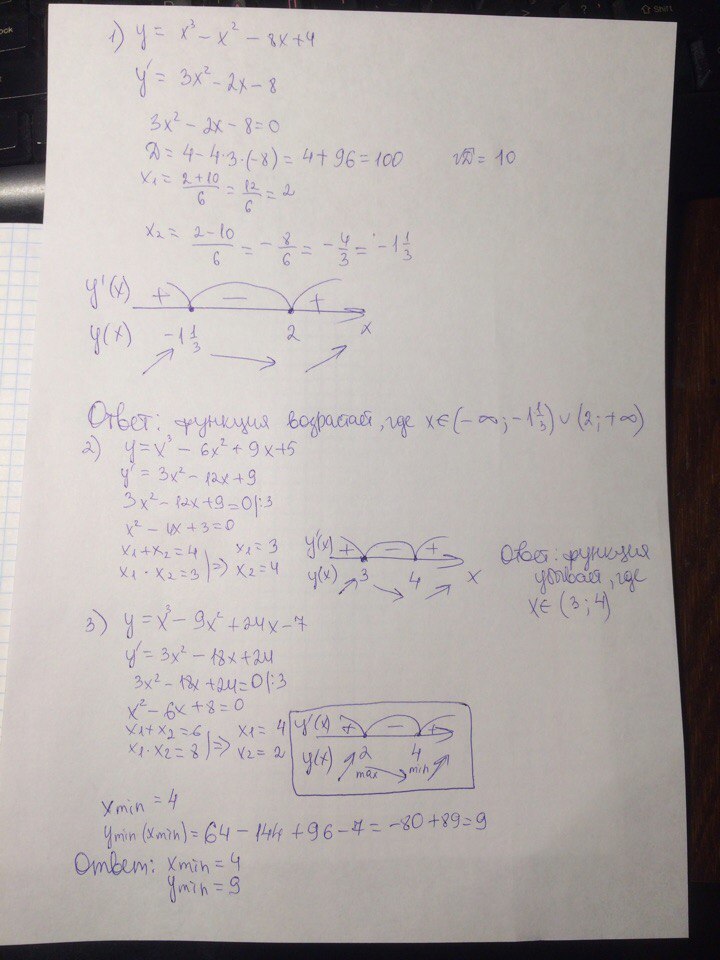 1) y = x³ - x² - 8x + 4
y' = 3x² - 2x - 8
3x² - 2x - 8 = 0
D = 4 - 4·3·(-8) = 4 + 96 = 100 √D = 10
x₁ = (2+10)/6 = 12/6 = 2
x₂ = (2-10)/6 = -8/6 = -4/3 = -1 1/3
y'(x) + - +
y(x) -1 1/3 2 x
Ответ: функция возрастает, где x∈(-∞; -1 1/3) ∪ (2; +∞)
2) y = x³ - 6x² + 9x + 5
y' = 3x² - 12x + 9
3x² - 12x + 9 = 0 |:3
x² - 4x + 3 = 0
x₁ + x₂ = 4
x₁ · x₂ = 3 |⇒ x₁ = 3
x₂ = 4
y'(x) + - +
y(x) 3 4 x
Ответ: функция
убывает, где
x∈(3; 4)
3) y = x³ - 9x² + 24x - 7
y' = 3x² - 18x + 24
3x² - 18x + 24 = 0 |:3
x² - 6x + 8 = 0
x₁ + x₂ = 6
x₁ · x₂ = 8 |⇒ x₁ = 4
x₂ = 2
y'(x) + - +
y(x) 2 4
max min
xmin = 4
ymin(xmin) = 64 - 144 + 96 - 7 = -80 + 89 = 9
Ответ: xmin = 4
ymin = 9